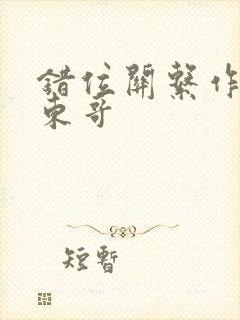 錯位關繫作
東哥
短暫